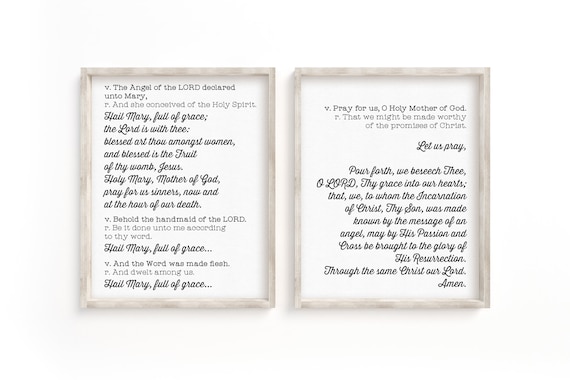 v. The Angel of the LORD declared
unto Mary,
r. And she conceived of the Holy Spirit.
Hail Mary, full of grace;
the Lord is with thee:
blessed art thou amongst women,
and blessed is the Fruit
of thy womb, Jesus.
Holy Mary, Mother of God,
pray for us sinners, now and
at the hour of our death.
v. Behold the handmaid of the LORD.
r. Be it done unto me according
to thy word.
Hail Mary, full of grace...
v. And the Word was made flesh.
r. And dwelt among us.
Hail Mary, full of grace...
v. Pray for us, O Holy Mother of God.
r. That we might be made worthy
of the promises of Christ.
Let us pray,
Pour forth, we beseech Thee,
O LORD, Thy grace into our hearts;
that, we, to whom the Incarnation
of Christ, Thy Son, was made
known by the message of an
angel, may by His Passion and
Cross be brought to the glory of
His Resurrection.
Through the same Christ our Lord.
Amen.